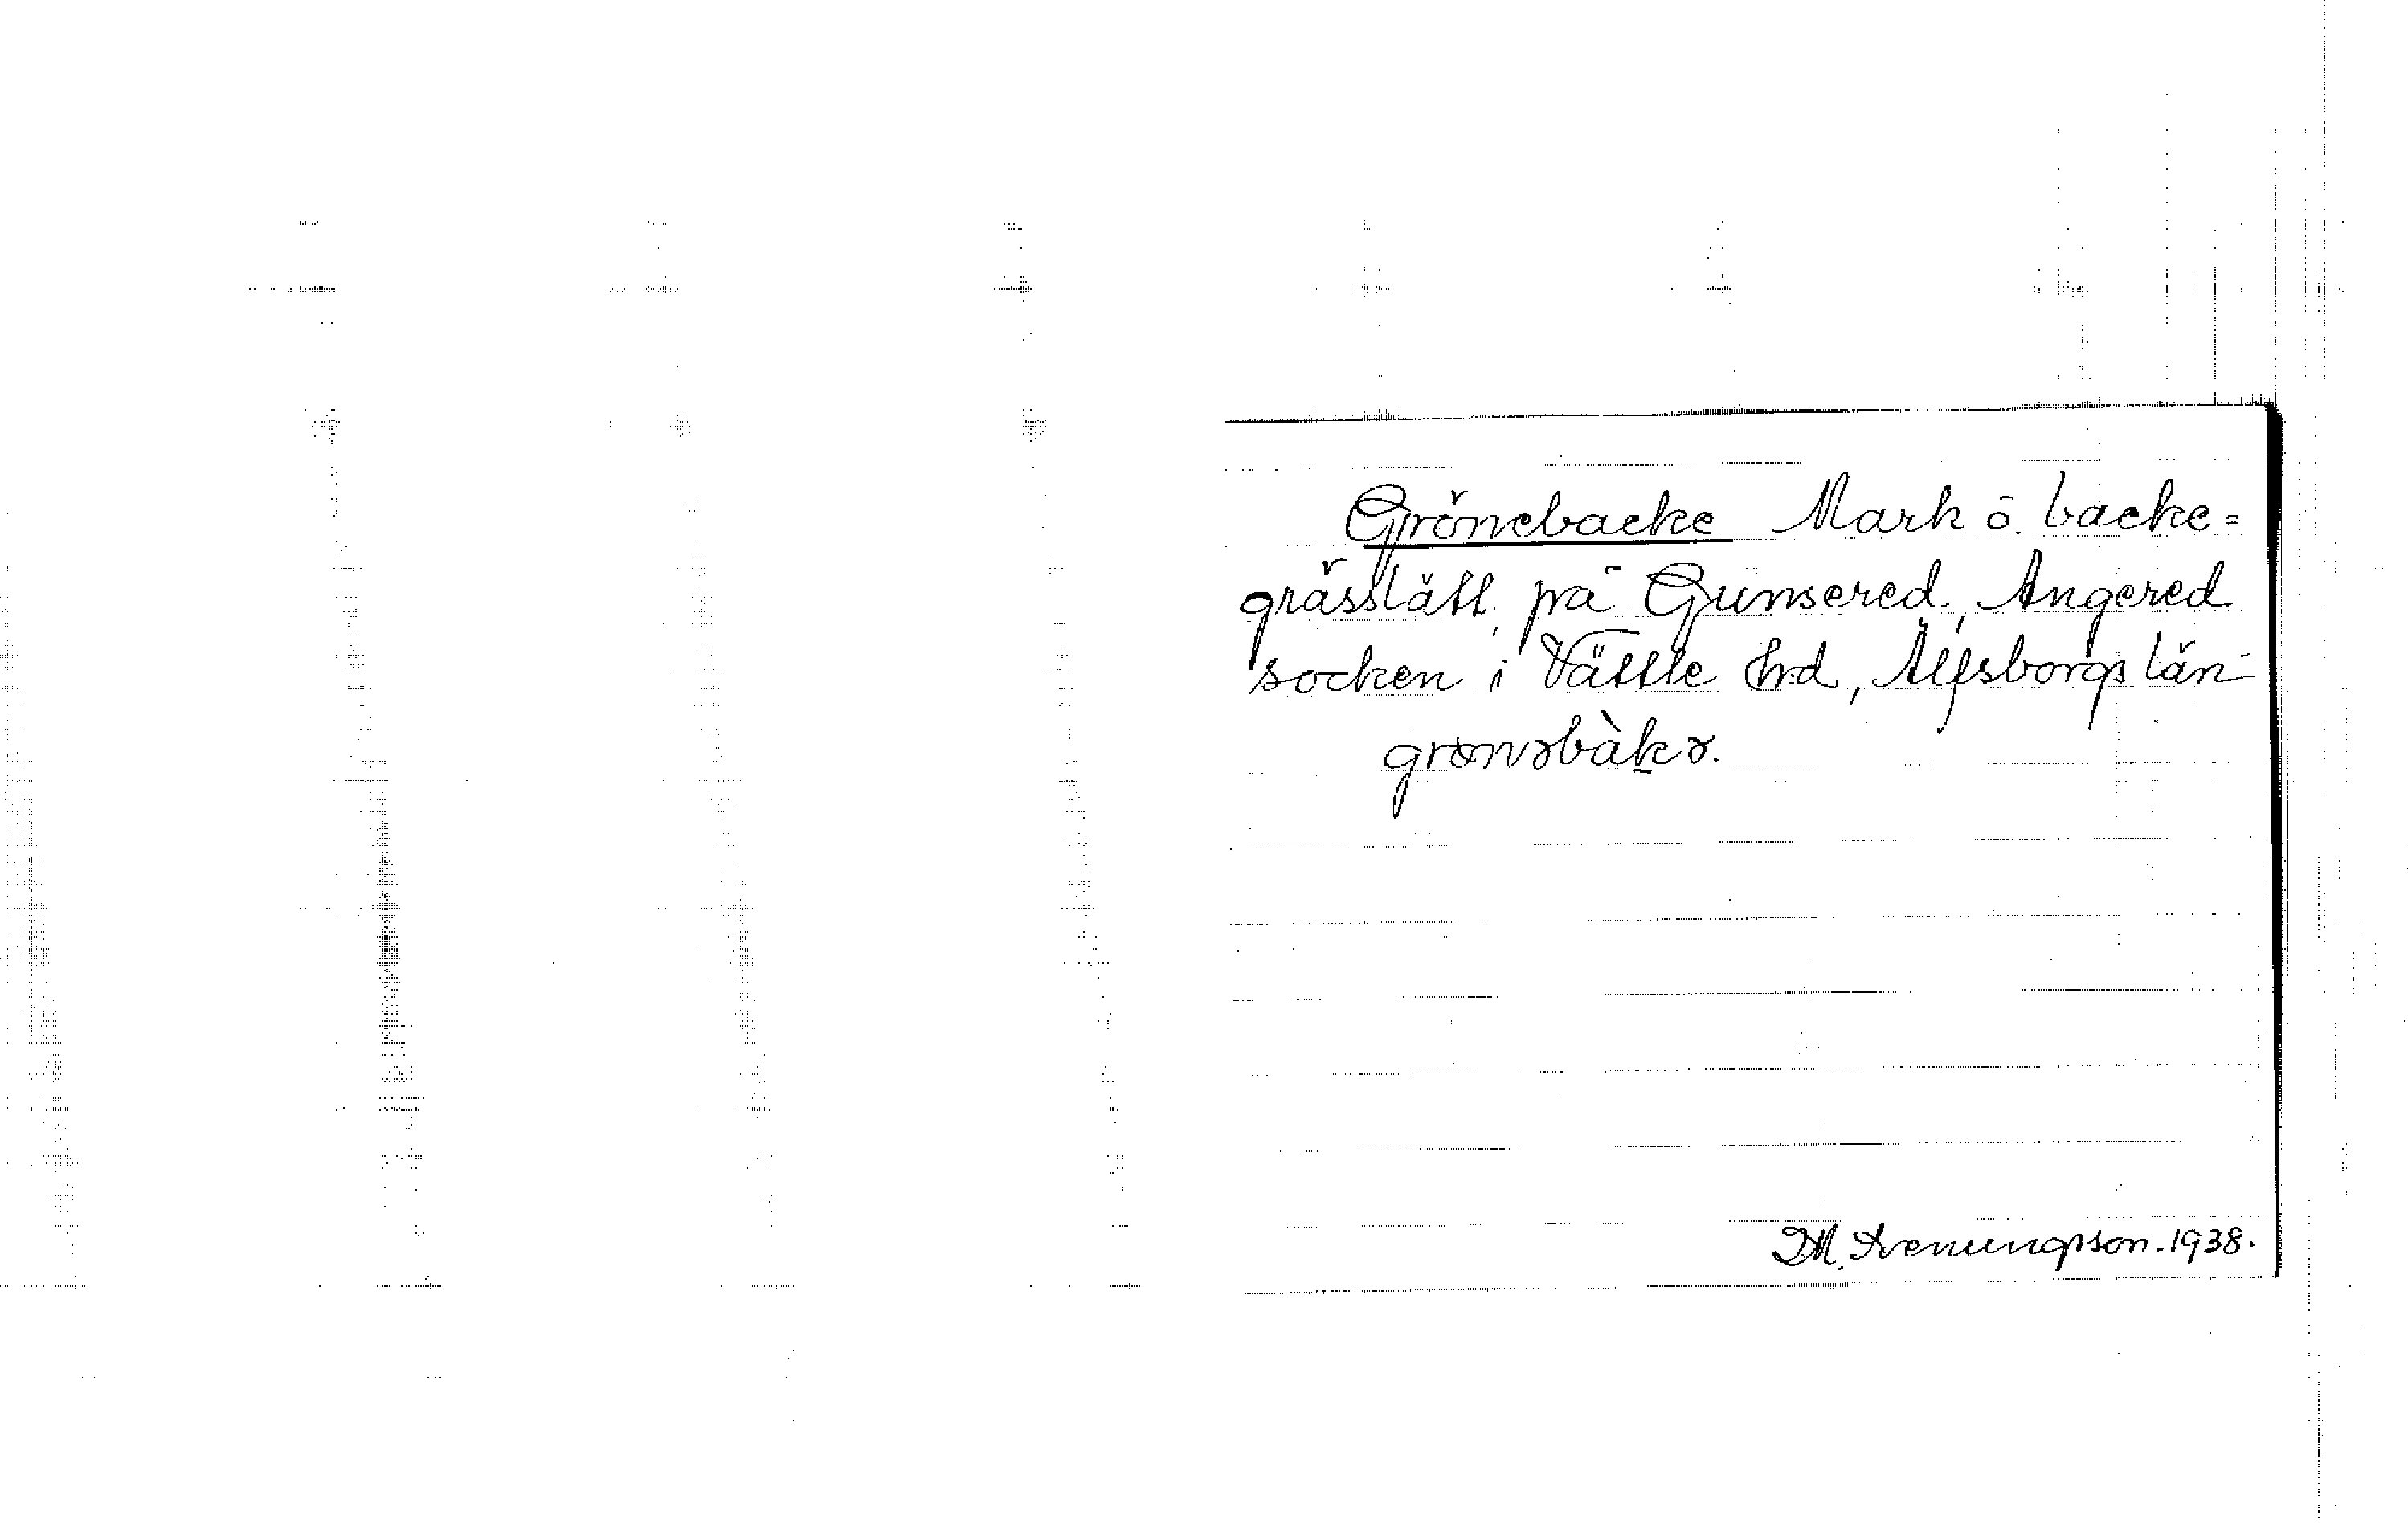 Grönebacke Mark o. backe=
grässlätt, på Gunsered, Angered
socken i Vättle hd, Älfsborgs län
grønəbàkə.
D.M. Svenungsson-1938.